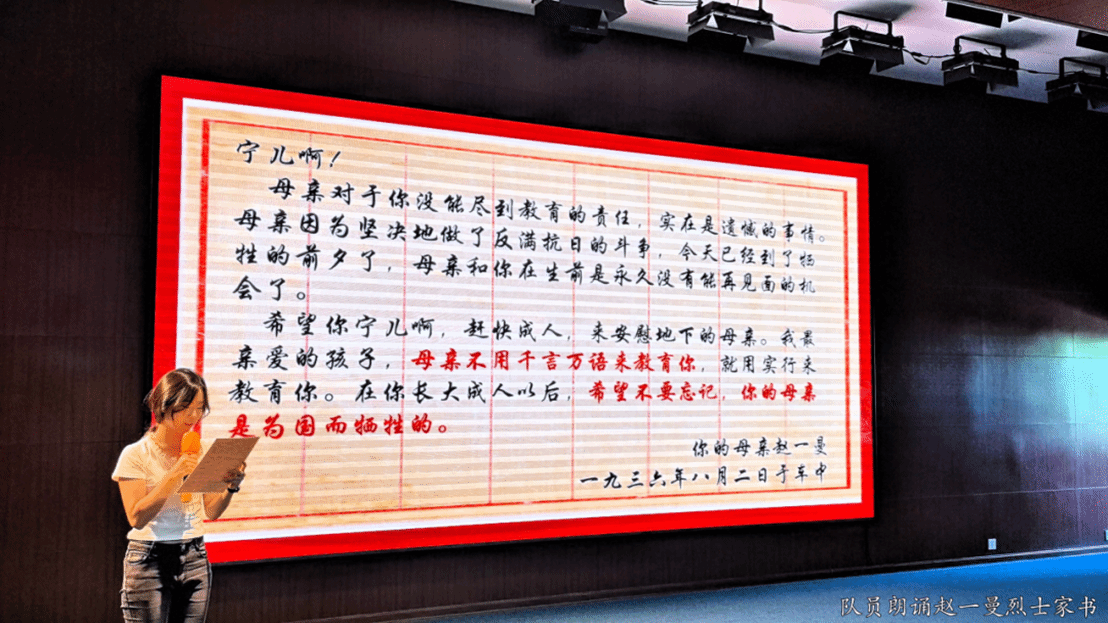 宁儿啊！
母亲对于你没能尽到教育的责任，实在是遗憾的事情。
母亲因为坚决地做了反满抗日的斗争，今天已经到了牺
牲的前夕了，母亲和你在生前是永久没有能再见面的机
会了。
希望你宁儿啊，赶快成人，来安慰地下的母亲。我最
亲爱的孩子，母亲不用千言万语来教育你，就用实行来
教育你。在你长大成人以后，希望不要忘记，你的母亲
是为国而牺牲的。
你的母亲赵一曼
一九三六年八月二日于车中
队员朗诵赵一曼烈士家书